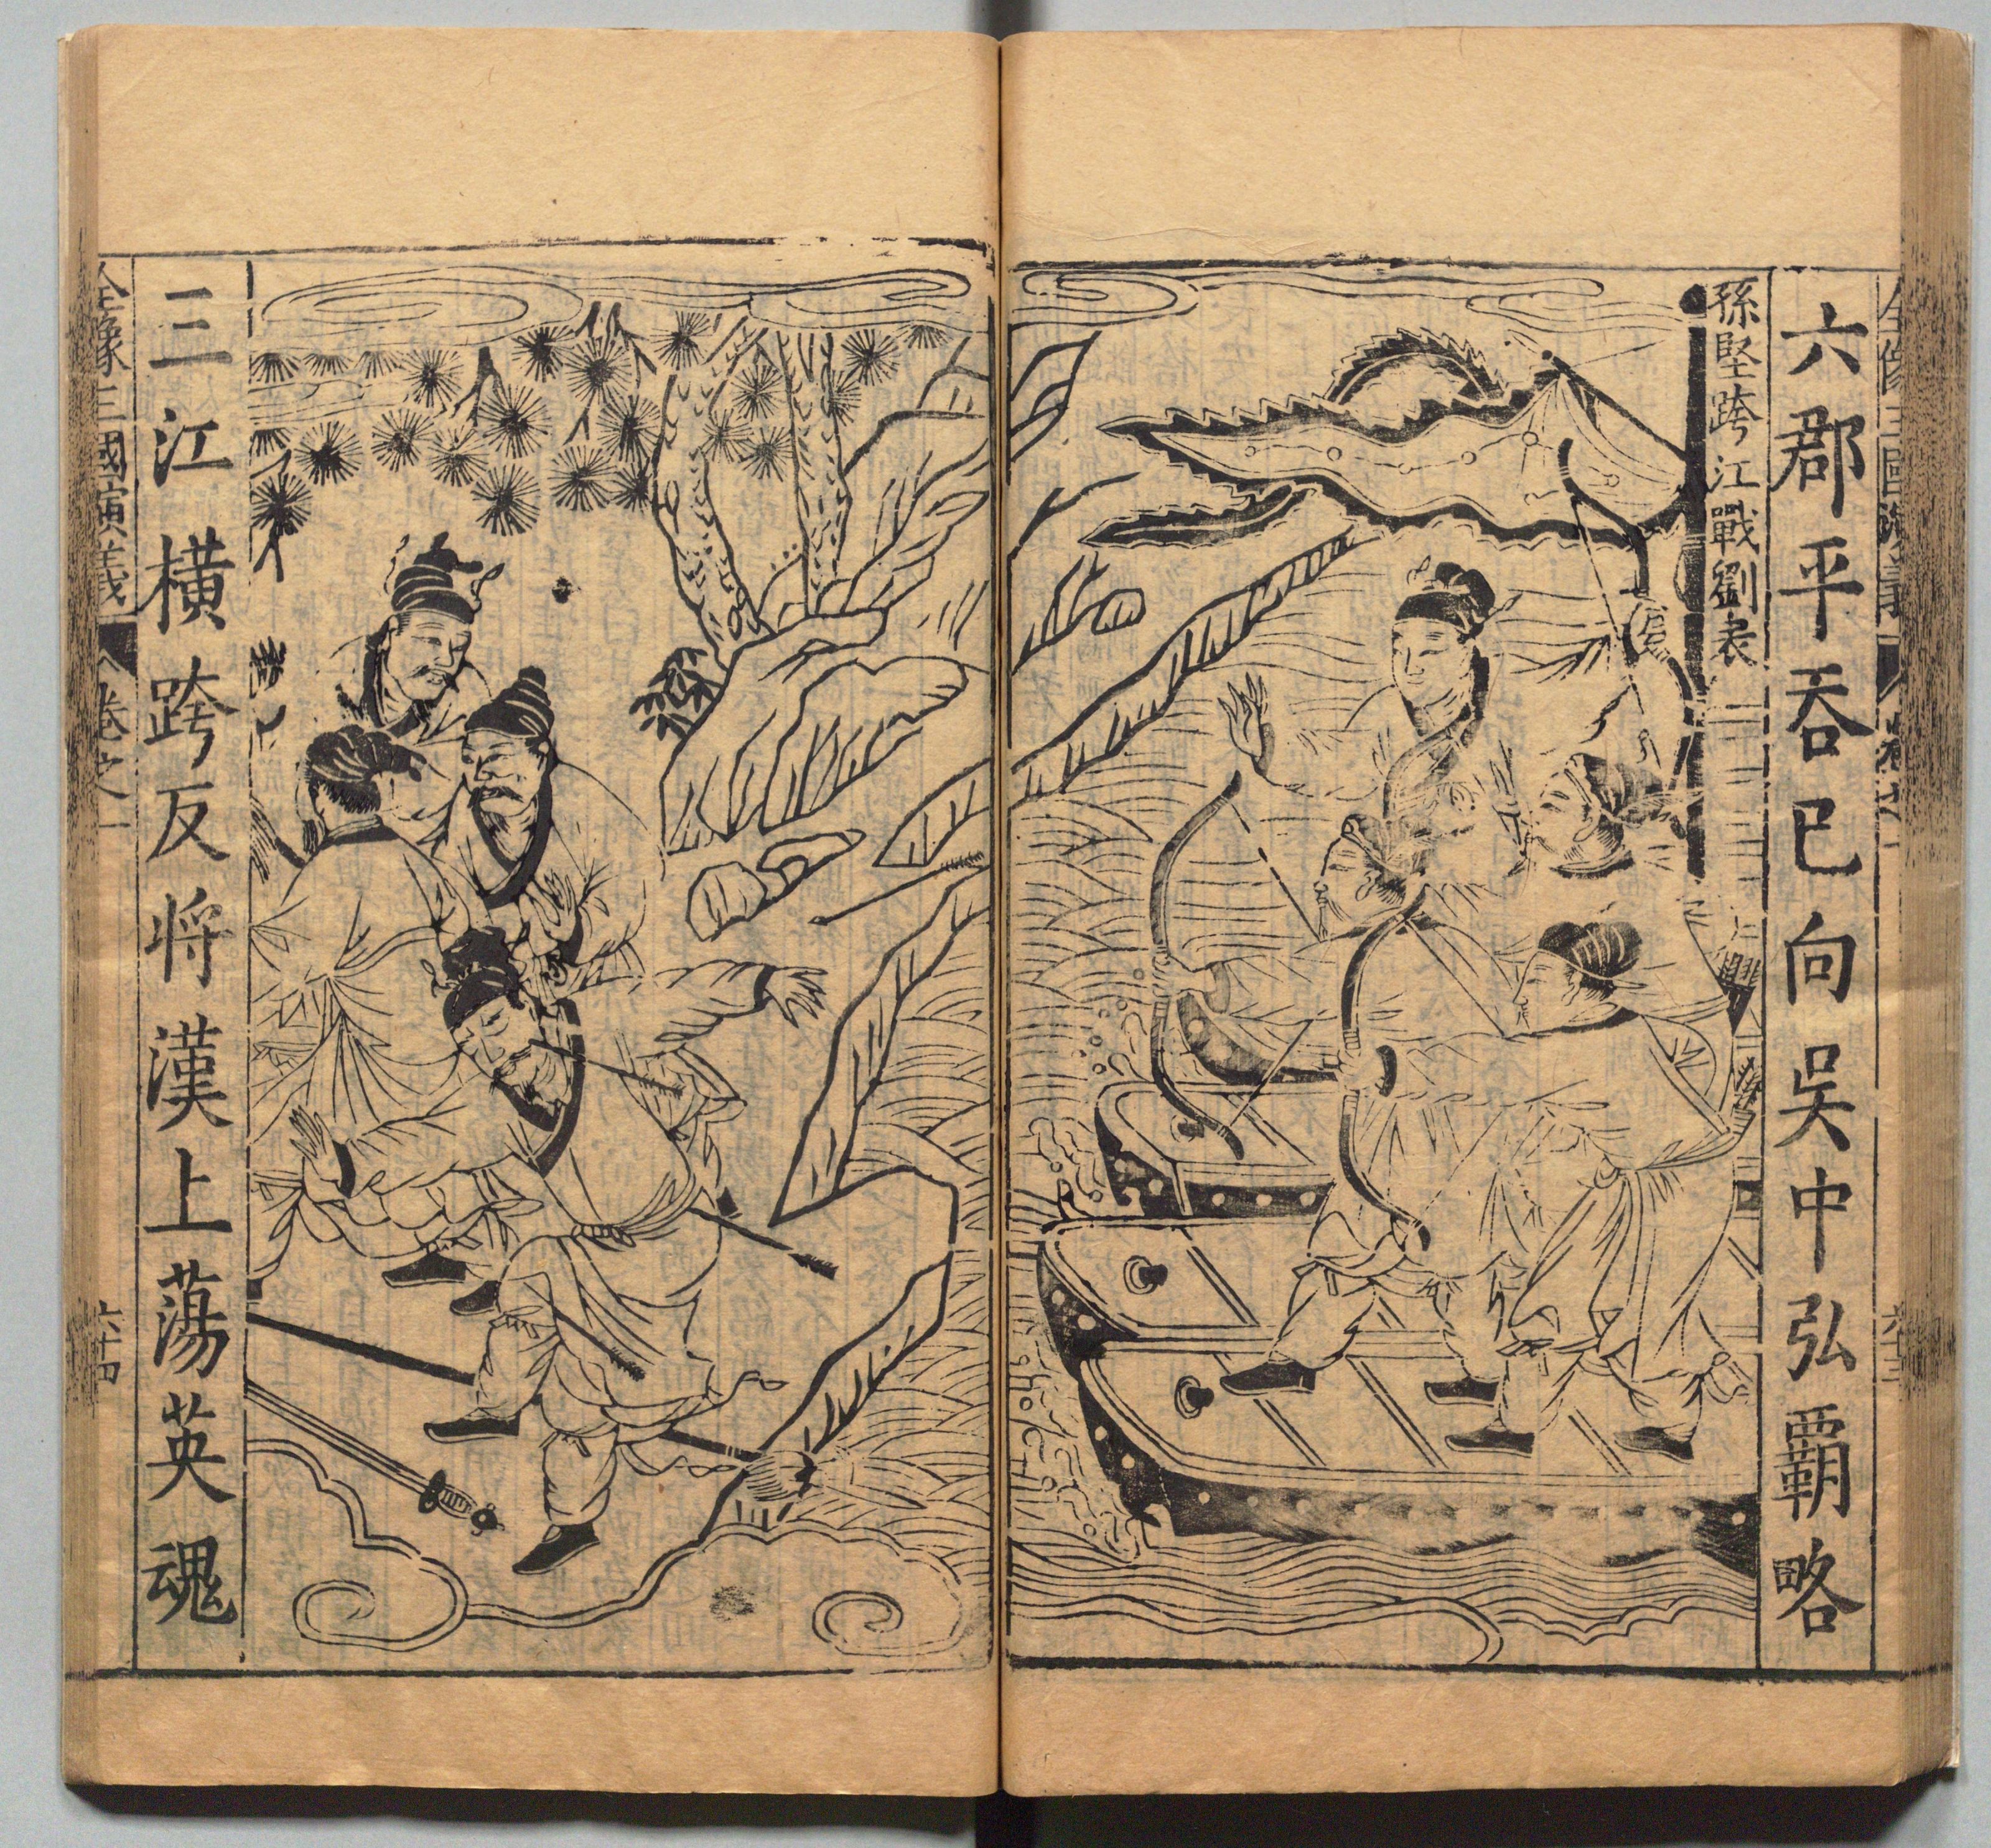 全像三國演義
卷之一
六十三
六郡平吞已向吳中弘霸略
孫堅跨江戰劉表
三江橫跨反將漢上蕩英魂
全像三國演義
卷之一
六十四